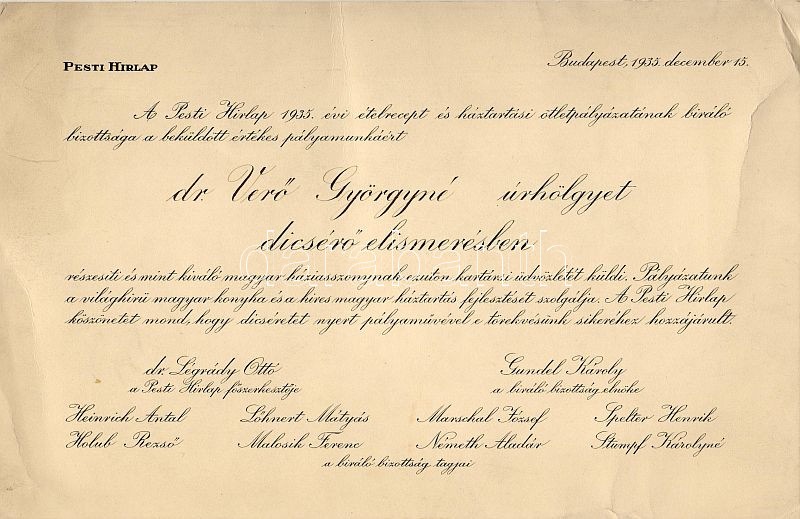 PESTI HIRLAP
Budapest, 1935. december 15.
A Pesti Hirlap 1935. évi ételrecept és háztartási ötletpályázatának biráló
bizottsága a beküldött értékes pályamunkáért
dr. Verő Györgyné úrhölgyet
dicsérő elismerésben
részesiti és mint kiváló magyar háziasszonynak ezúton kartársi üdvözletét küldi. Pályázatunk
a világhirü magyar konyha és a hires magyar háztartás fejlesztését szolgálja. A Pesti Hirlap
köszönetet mond, hogy dicséretet nyert pályaművével e törekvésünk sikeréhez hozzájárult.
dr. Légrády Ottó
a Pesti Hirlap főszerkesztője
Gundel Károly
a biráló bizottság elnöke
Heinrich Antal Löhnert Mátyás Marschal József Spelter Henrik
Holub Rezső Malosik Ferenc Németh Aladár Stümpf Károlyné
a biráló bizottság tagjai